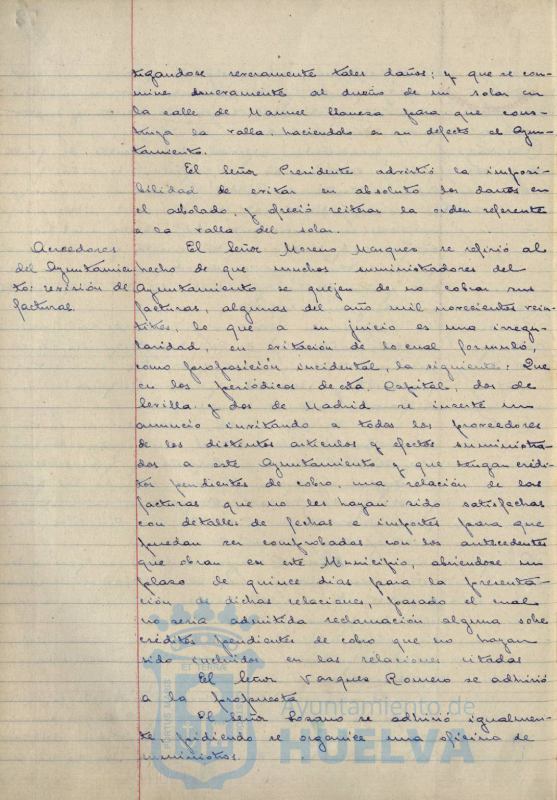 tigandose severamente tales daños; y que se con-
mine nuevamente al dueño de un solar en
la calle de Manuel Llaneza para que cons-
truya la valla, haciéndolo en su defecto el Ayun-
tamiento.
El Señor Presidente advirtió la imposi-
bilidad de evitar en absoluto los daños en
el arbolado, y ofreció reiterar la orden referente
a la valla del solar.
Acreedores
del Ayuntamien
to: revisión de
facturas.
El Señor Moreno Marquez se refirió al
hecho de que muchos suministradores del
Ayuntamiento se quejen de no cobrar sus
facturas, algunas del año mil novecientos vein-
titrés, lo que a su juicio es una irregu-
laridad, en evitación de lo cual formuló,
como proposición incidental, la siguiente: Que
en los periódicos de esta Capital, dos de
Sevilla y dos de Madrid se inserte un
anuncio invitando a todos los proveedores
de los distintos artículos y efectos suministra-
dos a este Ayuntamiento y que tengan crédi-
tos pendientes de cobro, una relación de las
facturas que no les hayan sido satisfechas
con detalles de fechas e importes para que
puedan ser comprobadas con los antecedentes
que obran en este Municipio, abriéndose un
plazo de quince días para la presenta-
ción de dichas relaciones, pasado el cual
no sería admitida reclamación alguna sobre
créditos pendientes de cobro que no hayan
sido incluidos en las relaciones citadas
El Señor Vazquez Romero se adhirió
a la propuesta
El Señor Lozano se adhirió igualmen-
te, pidiendo se organice una oficina de
suministros.
Ayuntamiento de
HUELVA